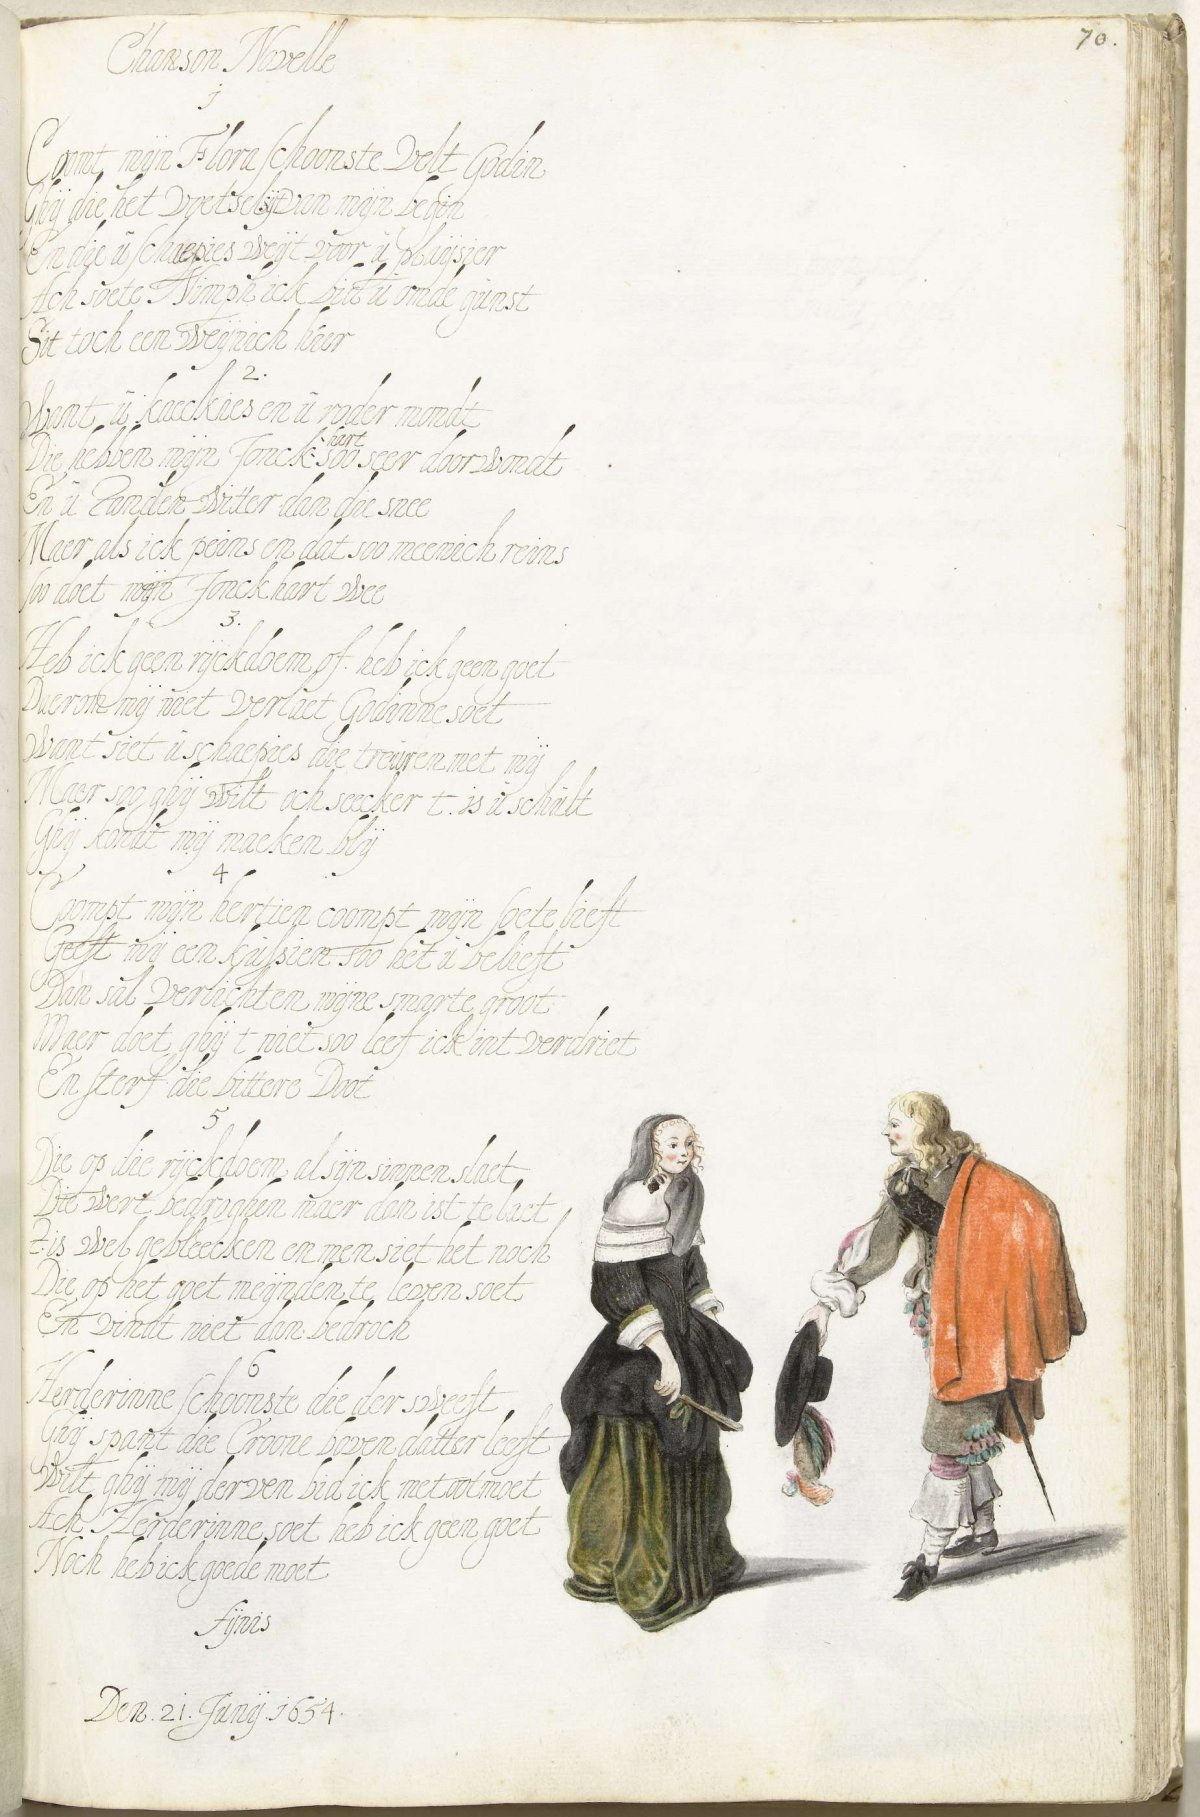 70.
Chanson Novelle
1
Coomt mijn Flora schoonste Velt Godin
Ghij die het voetselsijt van mijn begin
En die ú schaepies weijt voor ú plúijsier
Ach soete Nimph ick bidt ú omde gúnst
Sit toch een weijnich hier
2.
Want ú kaeckies en ú roder mondt
Die hebben mijn Jonck hart soo seer doorwondt
En ú Handen witter dan die snee
Maer als ick peins en dat soo meenich reins
soo doet mijn Jonck hart wee
3.
Heb ick geen rijckdoem of heb ick geen goet
Daerom mij niet verlaet Godinne soet
Want siet ú schaepies die treúren met mij
Maer soo ghij wilt och seecker t. is ú schúlt
Ghij kondt mij maeken blij
4
Coompt mijn hertien coompt mijn soete lieft
Geeft mij een kússien soo het ú belieft
Dan sal verlichten mijne smarte groot
Maer doet ghij t niet soo leef ick int verdriet
En sterf die bittere Doot
5
Die op die rijckdoem al sijn sinnen slaet
Die wert bedroghen maer dan ist te laet
t. is wel gebleecken en men siet het noch
Die op het goet meijnden te leven soet
En vindt niet dan bedroch
6
Herderinne schoonste die der sweeft
Ghij spant die Croone boven datter leeft
Wilt ghij mij derven bid ick met ootmoet
Ach Herderinne soet heb ick geen goet
Noch heb ick goede moet
fijnis
Den. 21. Junij. 1654.